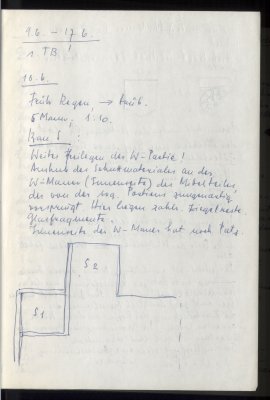 9.6. – 17.6.
1. TB!
10.6.
Früh Regen → trüb.
5 Mann; 1:10.
Raum 5:
Weiter Freilegen der W-Partie!
Aushub des Schuttmateriales an der
W-Mauer (Innenseite) des Mittelteiles,
der von der sog. Porticus zungenartig
vorspringt. Hier liegen zahlr. Ziegelreste
Glasfragmente.
Innenseite der W-Mauer hat noch Putz.
S 2
S 1